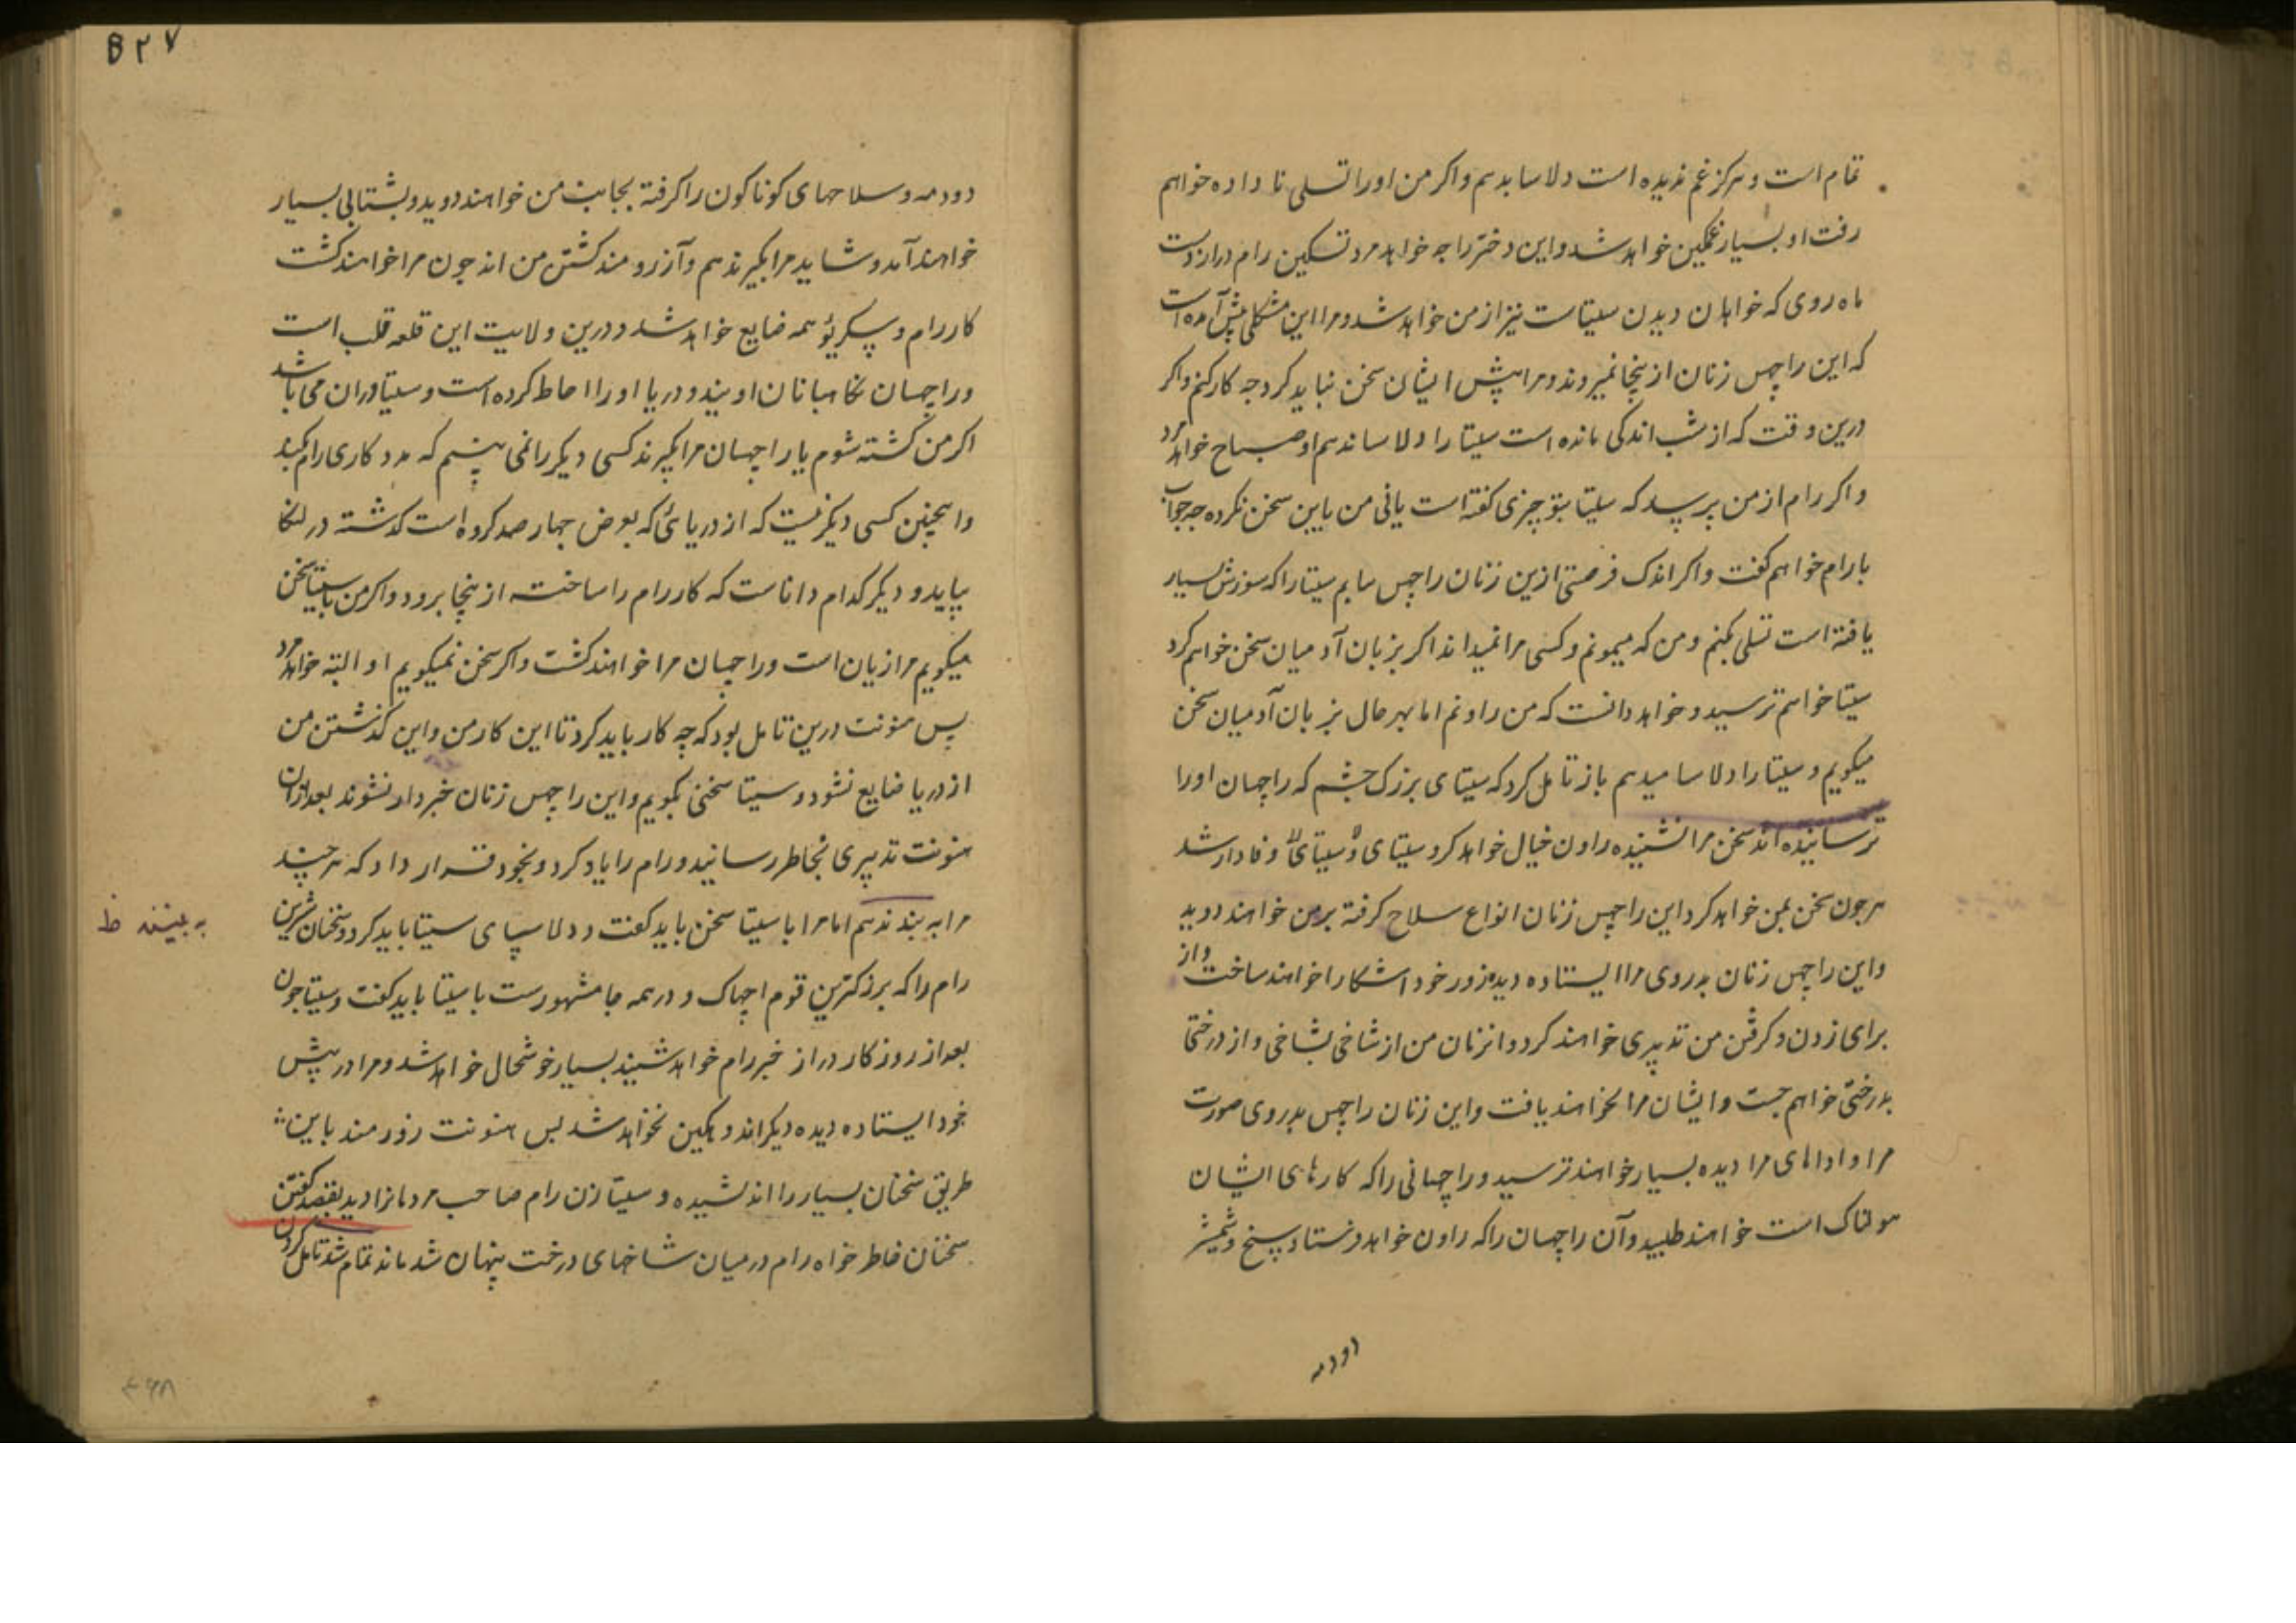 تمام است و هرکز غم ندیده است دلاسا بدهم و اکر من او را تسلی نا داده خواهم
رفت او بسیار غمکین خواهد شد و این دختر راجه خواهد مرد تسکین رام دراز دست
ماه روی که خواهان دیدن سیتاست نیز از من خواهد شد و مرا این مشکلی پیش آمده است
که این راچهس زنان از ینجا نمیروند و مرا پیش ایشان سخن نباید کرد جه کار کنم و اکر
درین وقت که از شب اندکی مانده است سیتا را دلاسا ندهم او صباح خواهد مرد
و اکر رام از من پرسد که سیتا بتو چیزی کفته است یا نی من باین سخن نکرده جه جواب
با رام خواهم کفت و اکر اندک فرصتی ازین زنان راچهس میابم سیتا را که سوزش بسیار
یافته است تسلی بکنم و من که میمونم و کسی مرا نمیداند اکر بزبان آدمیان سخن خواهم کرد
سیتا خواهم ترسید و خواهد دانست که من راونم اما بهر حال بزبان آدمیان سخن
میکویم و سیتا را دلاسا میدهم باز تامل کرد که سیتای بزرک چشم که راچهسان او را
ترسانیده اند سخن مرا نشنیده راون خیال خواهد کرد سیتای وفادار شد
هرجون سخن بمن خواهد کرد این راچهس زنان انواع سلاح کرفته بر من خواهند دوید
و این راچهس زنان بدروی مرا ایستاده دیده زور خود اشکارا خواهند ساخت و از
برای زدن و کرفتن من تدبیری خواهند کرد و از زنان من از شاخی بشاخی و از درختی
بدرختی خواهم جست و ایشان مرا نخواهند یافت و این زنان راچهس بدروی صورت
مرا و اداهای مرا دیده بسیار خواهند ترسید و راچسانی را که کارهای ایشان
هولناک است خواهند طلبید و آن راچهسان را که راون خواهد فرستاد سیخ و شمشیر
دودمه
B ۲۷
دودمه و سلاحهای کوناکون را کرفته بجانب من خواهند دوید و بشتابی بسیار
خواهند آمد و شاید مرا بکیرند هم و آرزومند کشتن من اند جون مرا خواهند کشت
کار رام و سکریو همه ضایع خواهد شد و درین ولایت این قلعه قلب است
و راچسان نکاهبانان اویند و دریا او را احاطه کرده است و سیتا دران می باشد
اکر من کشته شوم یا راچهسان مرا بکیرند کسی دیکر را نمی بینم که مددکاری رام کند
و اینچنین کسی دیکر نیست که از دریائی که بعرض چهار صد کروه است کذشته در لنکا
بیاید و دیکر کدام داناست که کار رام را ساخته از ینجا برود و اکر من با سیتا سخن
میکویم مرا زیان است و راچسان مرا خواهند کشت و اکر سخن نمیکویم او البته خواهد مرد
پس هنونت درین تامل بود که چه کار باید کرد تا این کار من و این کذشتن من
از دریا ضایع نشود و سیتا سخنی بکویم و این راچهس زنان خبردار نشوند بعد ازان
هنونت تدبیری بخاطر رسانید و رام را یاد کرد و بخود قرار داد که هرچند
مرا به بندند هم اما مرا با سیتا سخن باید کفت و دلاسای سیتا باید کرد و سخنان شیرین
به بینند ظ
رام را که بزرکترین قوم اچهاک و در همه جا مشهورست با سیتا باید کفت و سیتا جون
بعد از روزکار دراز خبر رام خواهد شنید بسیار خوشحال خواهد شد و مرا در پیش
خود ایستاده دیده دیکر اندوهکین نخواهد شد بس هنونت زورمند باین
طریق سخنان بسیار را اندیشیده و سیتا زن رام صاحب مردمانرا دید بقصد کفتن
سخنان خاطر خواه رام در میان شاخهای درخت پنهان شد ماند تمام شد تامل کردن